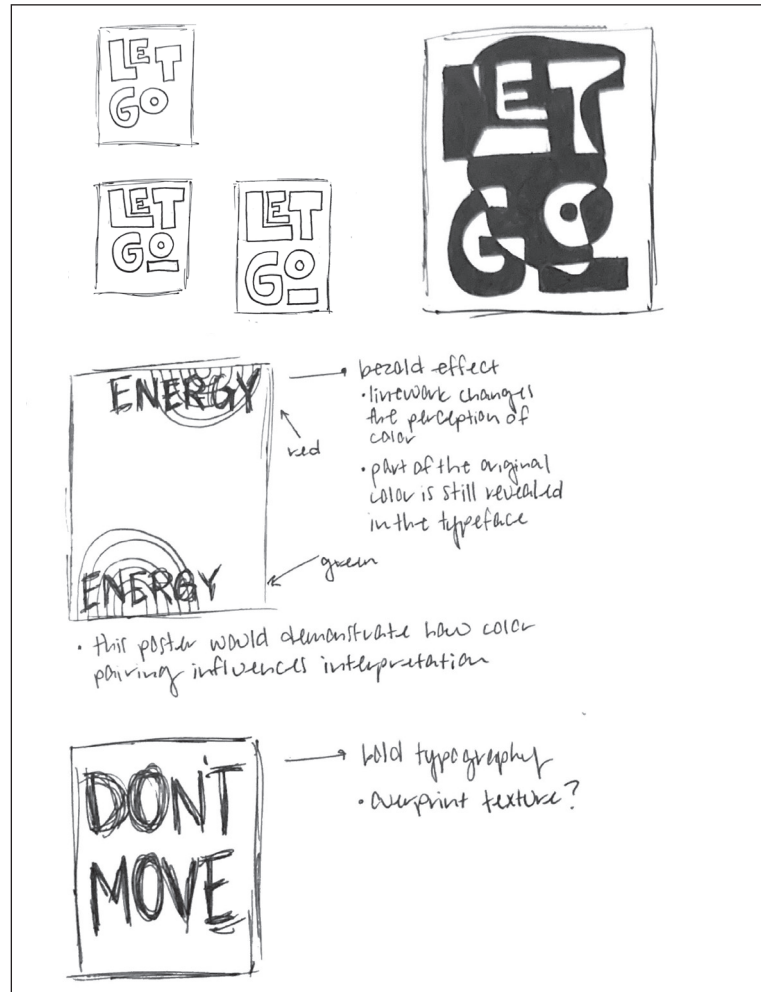 LET
GO
LET
GO
LET
GO
LET
GO
ENERGY
red
bezold effect
• linework changes
the perception of
color
• part of the original
color is still revealed
in the typeface
ENERGY
green
• this poster would demonstrate how color
pairing influences interpretation
DON'T
MOVE
bold typography
• overprint texture?